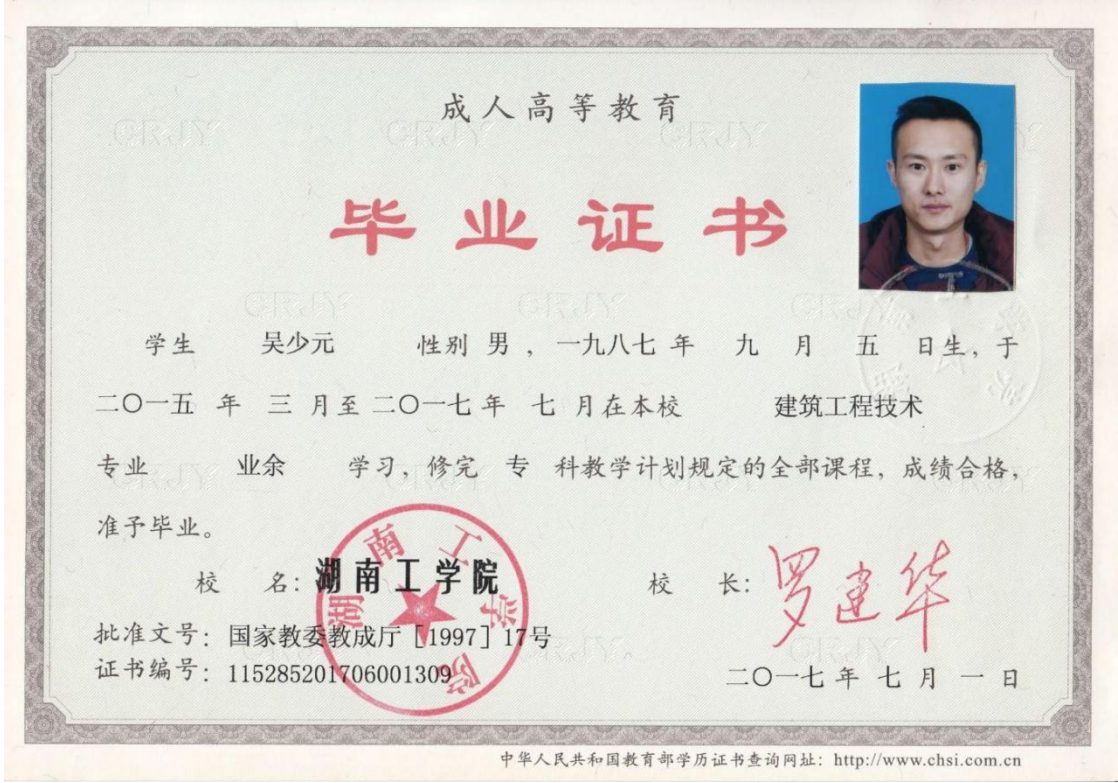 成人高等教育
毕业证书
学生 吴少元 性别 男，一九八七 年 九 月 五 日生，于
二〇一五 年 三 月至 二〇一七 年 七 月在本校 建筑工程技术
专业 业余 学习，修完 专 科教学计划规定的全部课程，成绩合格，
准予毕业。
校 名：湖南工学院
校 长：罗建华
批准文号：国家教委教成厅［1997］17号
证书编号：115285201706001309
二〇一七 年 七 月 一 日
湖南工学院
CRJY CRJY CRJY
CRJY CRJY CRJY
中华人民共和国教育部学历证书查询网址：http://www.chsi.com.cn